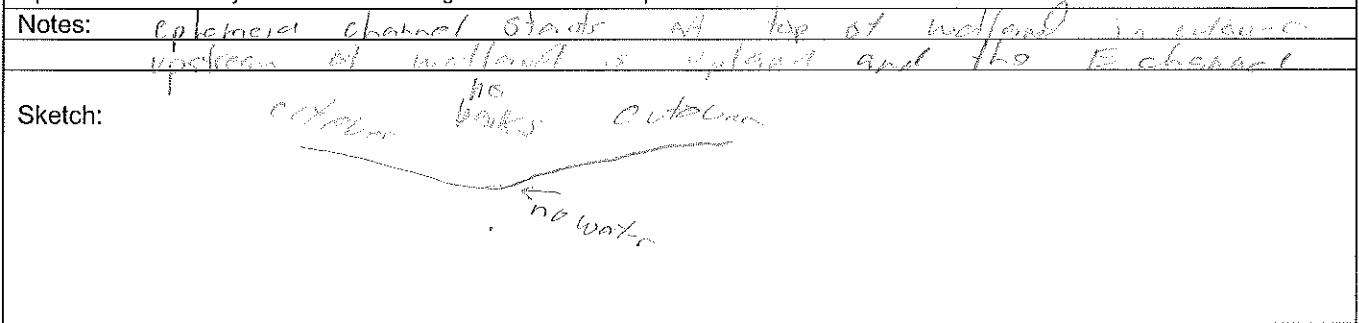 Notes: ephemeral channel starts at top of wetland in
upstream of wetland is upland and the E channel
Sketch:
no
banks
no water